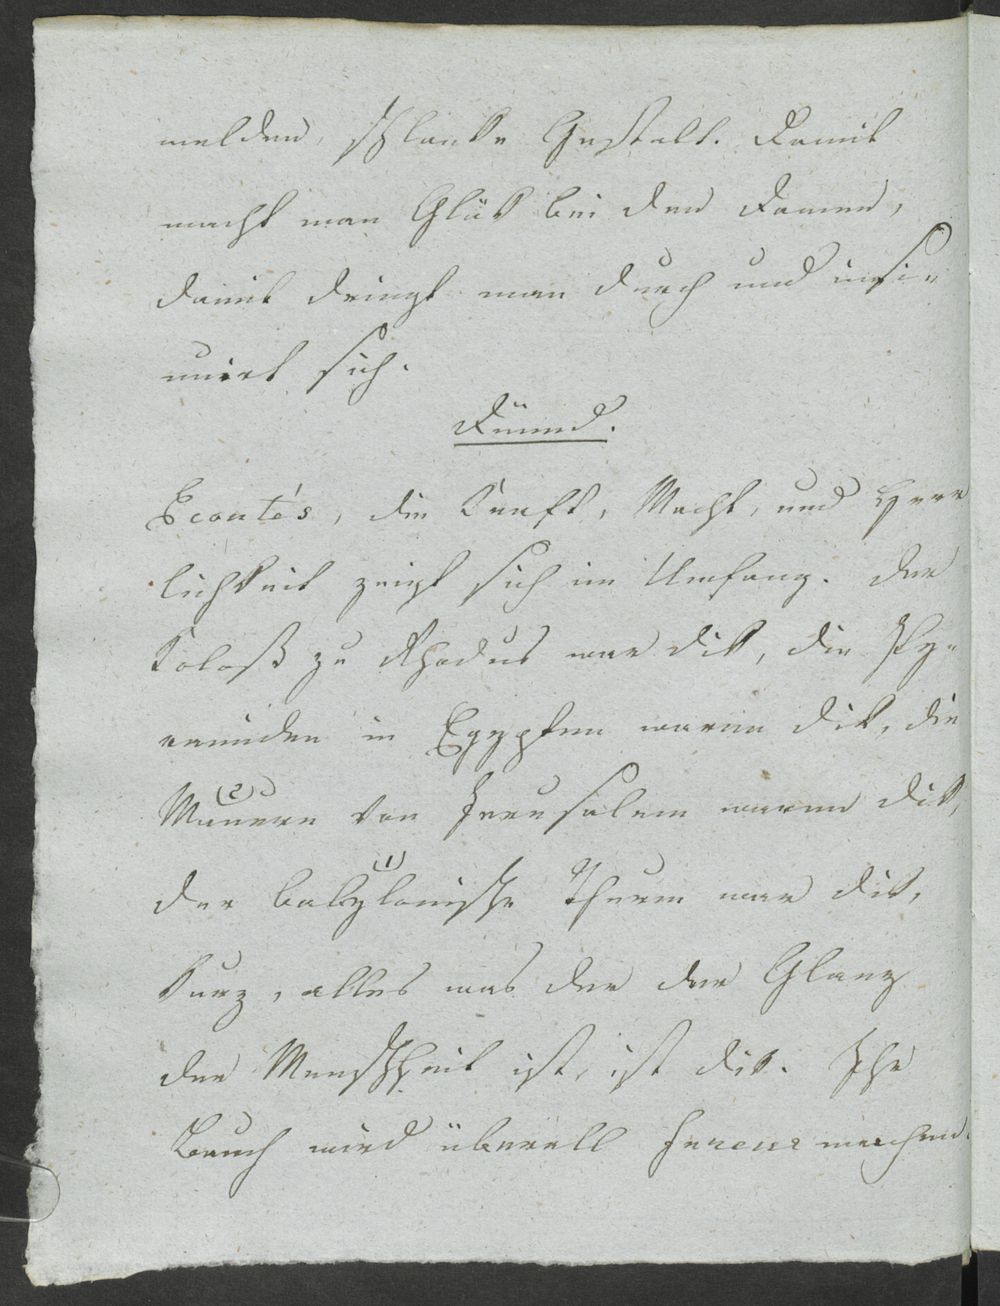 melden, schlanke Gestalt. Damit
macht man Glük bei den Damen,
damit dringt man durch und insi-
nuirt sich.
Ecoutés, die Kraft, Macht, und Herr
lichkeit zeigt sich im Umfang. Der
Koloß zu Rhodus war dik, die Py-
ramiden in Egypten waren dik, die
(2)
Mauern von Jerusalem waren dik,
(1)
der babylonische Thurm war dik,
kurz, alles was der der Glanz
der Menschheit ist, ist dik. Ihr
Bauch wird überall fureur machen.